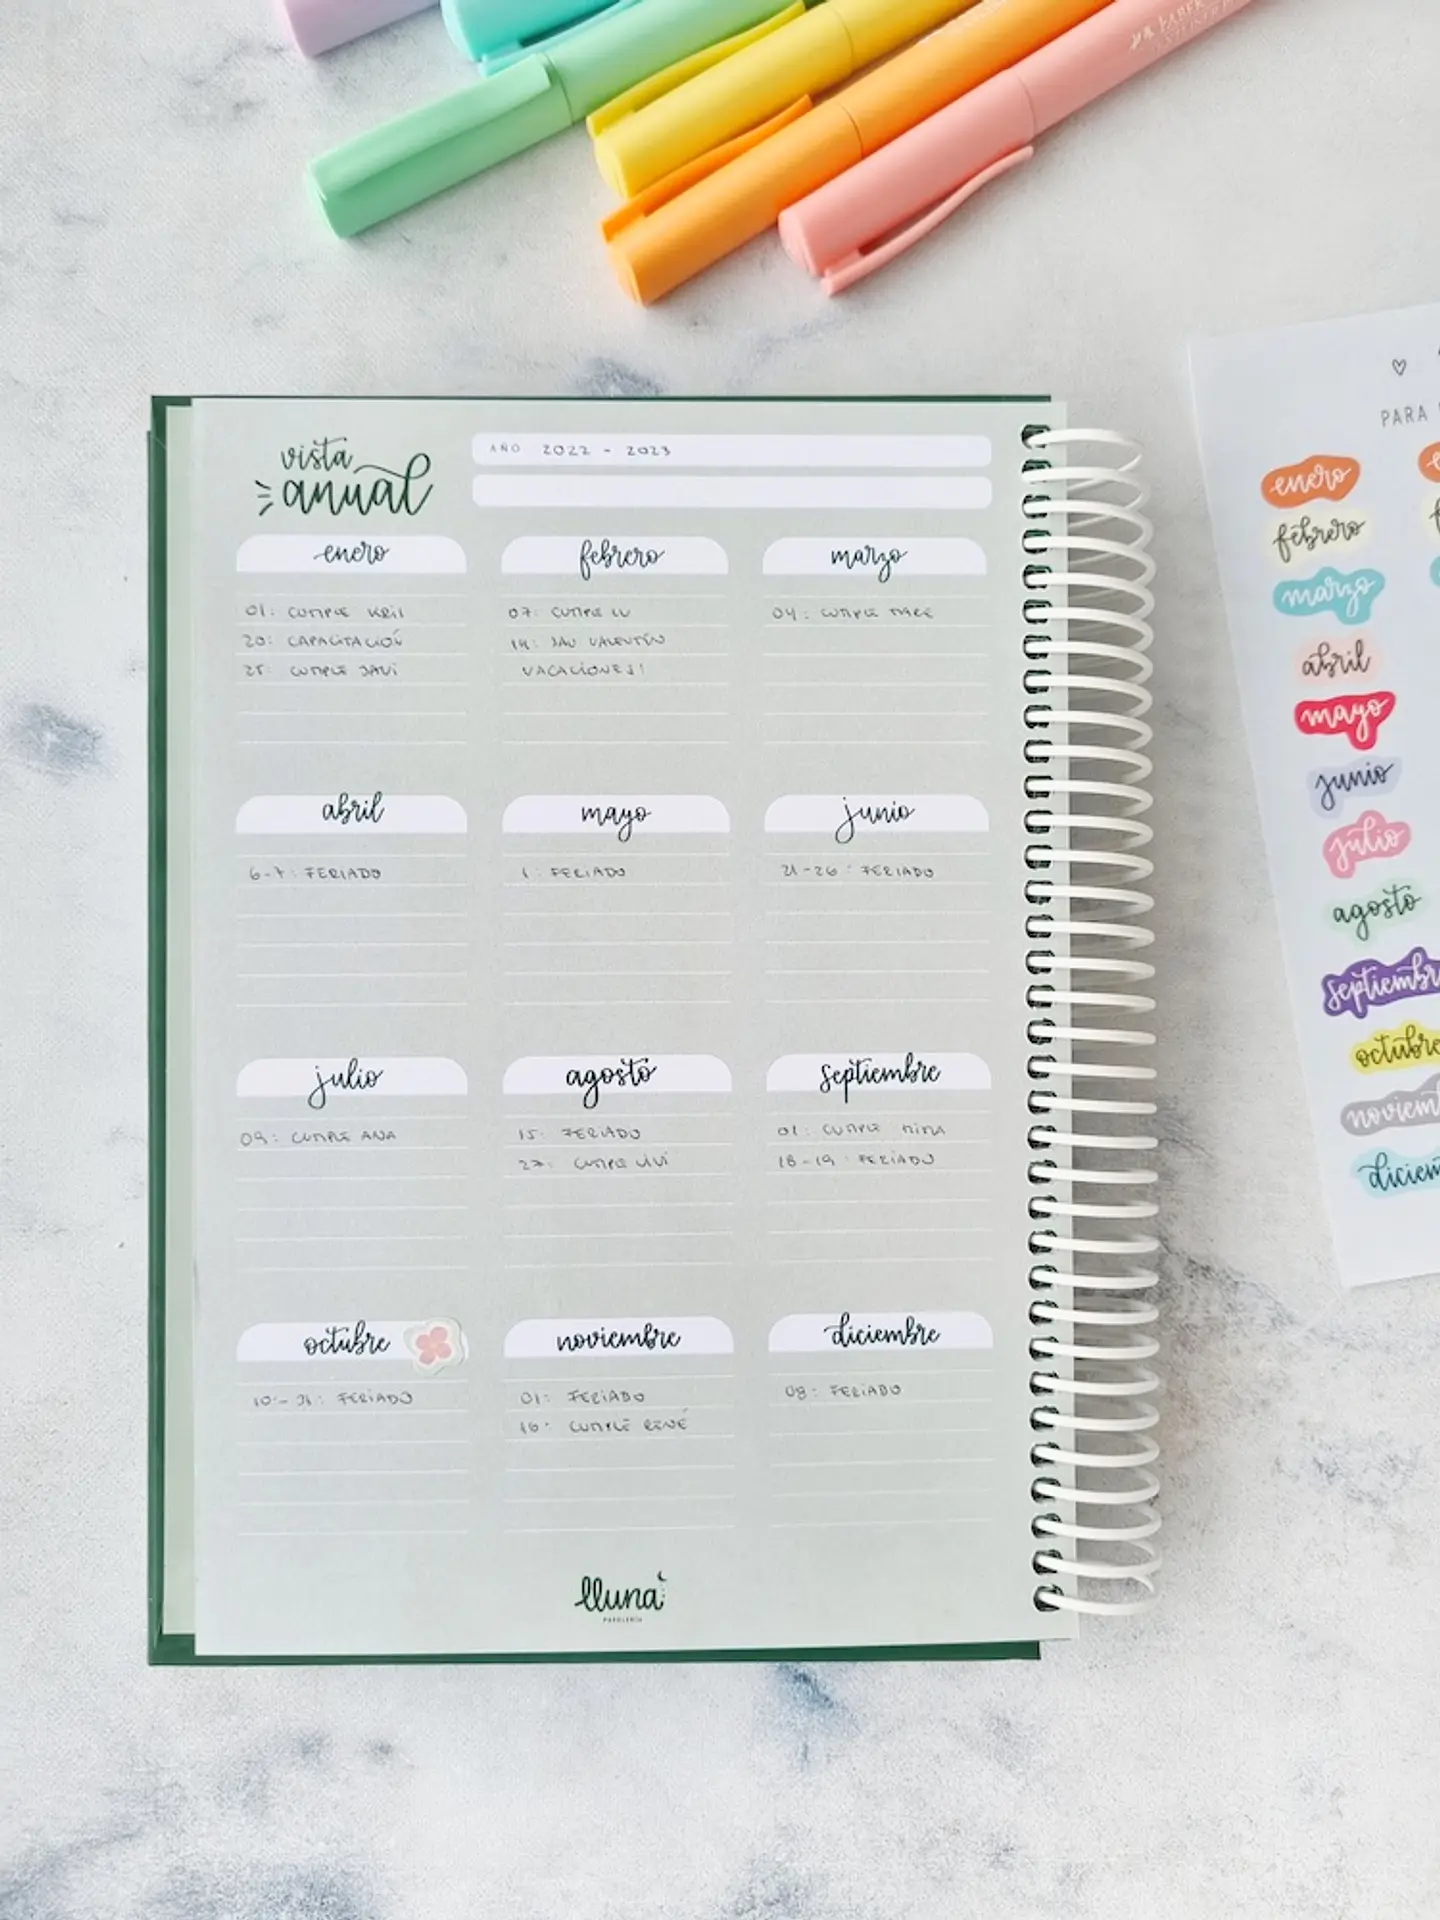 FABER
vista
anual
AÑO 2022 - 2023
enero
01: CUMPLE KRIL
20: CAPACITACIÓN
25: CUMPLE JAVI
febrero
07: CUMPLE LU
14: SAN VALENTÍN
VACACIONES!
marzo
04: CUMPLE
abril
6-7: FERIADO
mayo
1: FERIADO
junio
21-26: FERIADO
julio
09: CUMPLE ANA
agosto
15: FERIADO
27: CUMPLE VIVI
septiembre
01: CUMPLE NINA
18-19: FERIADO
octubre
10-31: FERIADO
noviembre
01: FERIADO
16: CUMPLE RENÉ
diciembre
08: FERIADO
lluna
PAPELERÍA
PARA
enero
febrero
marzo
abril
mayo
junio
julio
agosto
septiembre
octubre
noviem
diciem